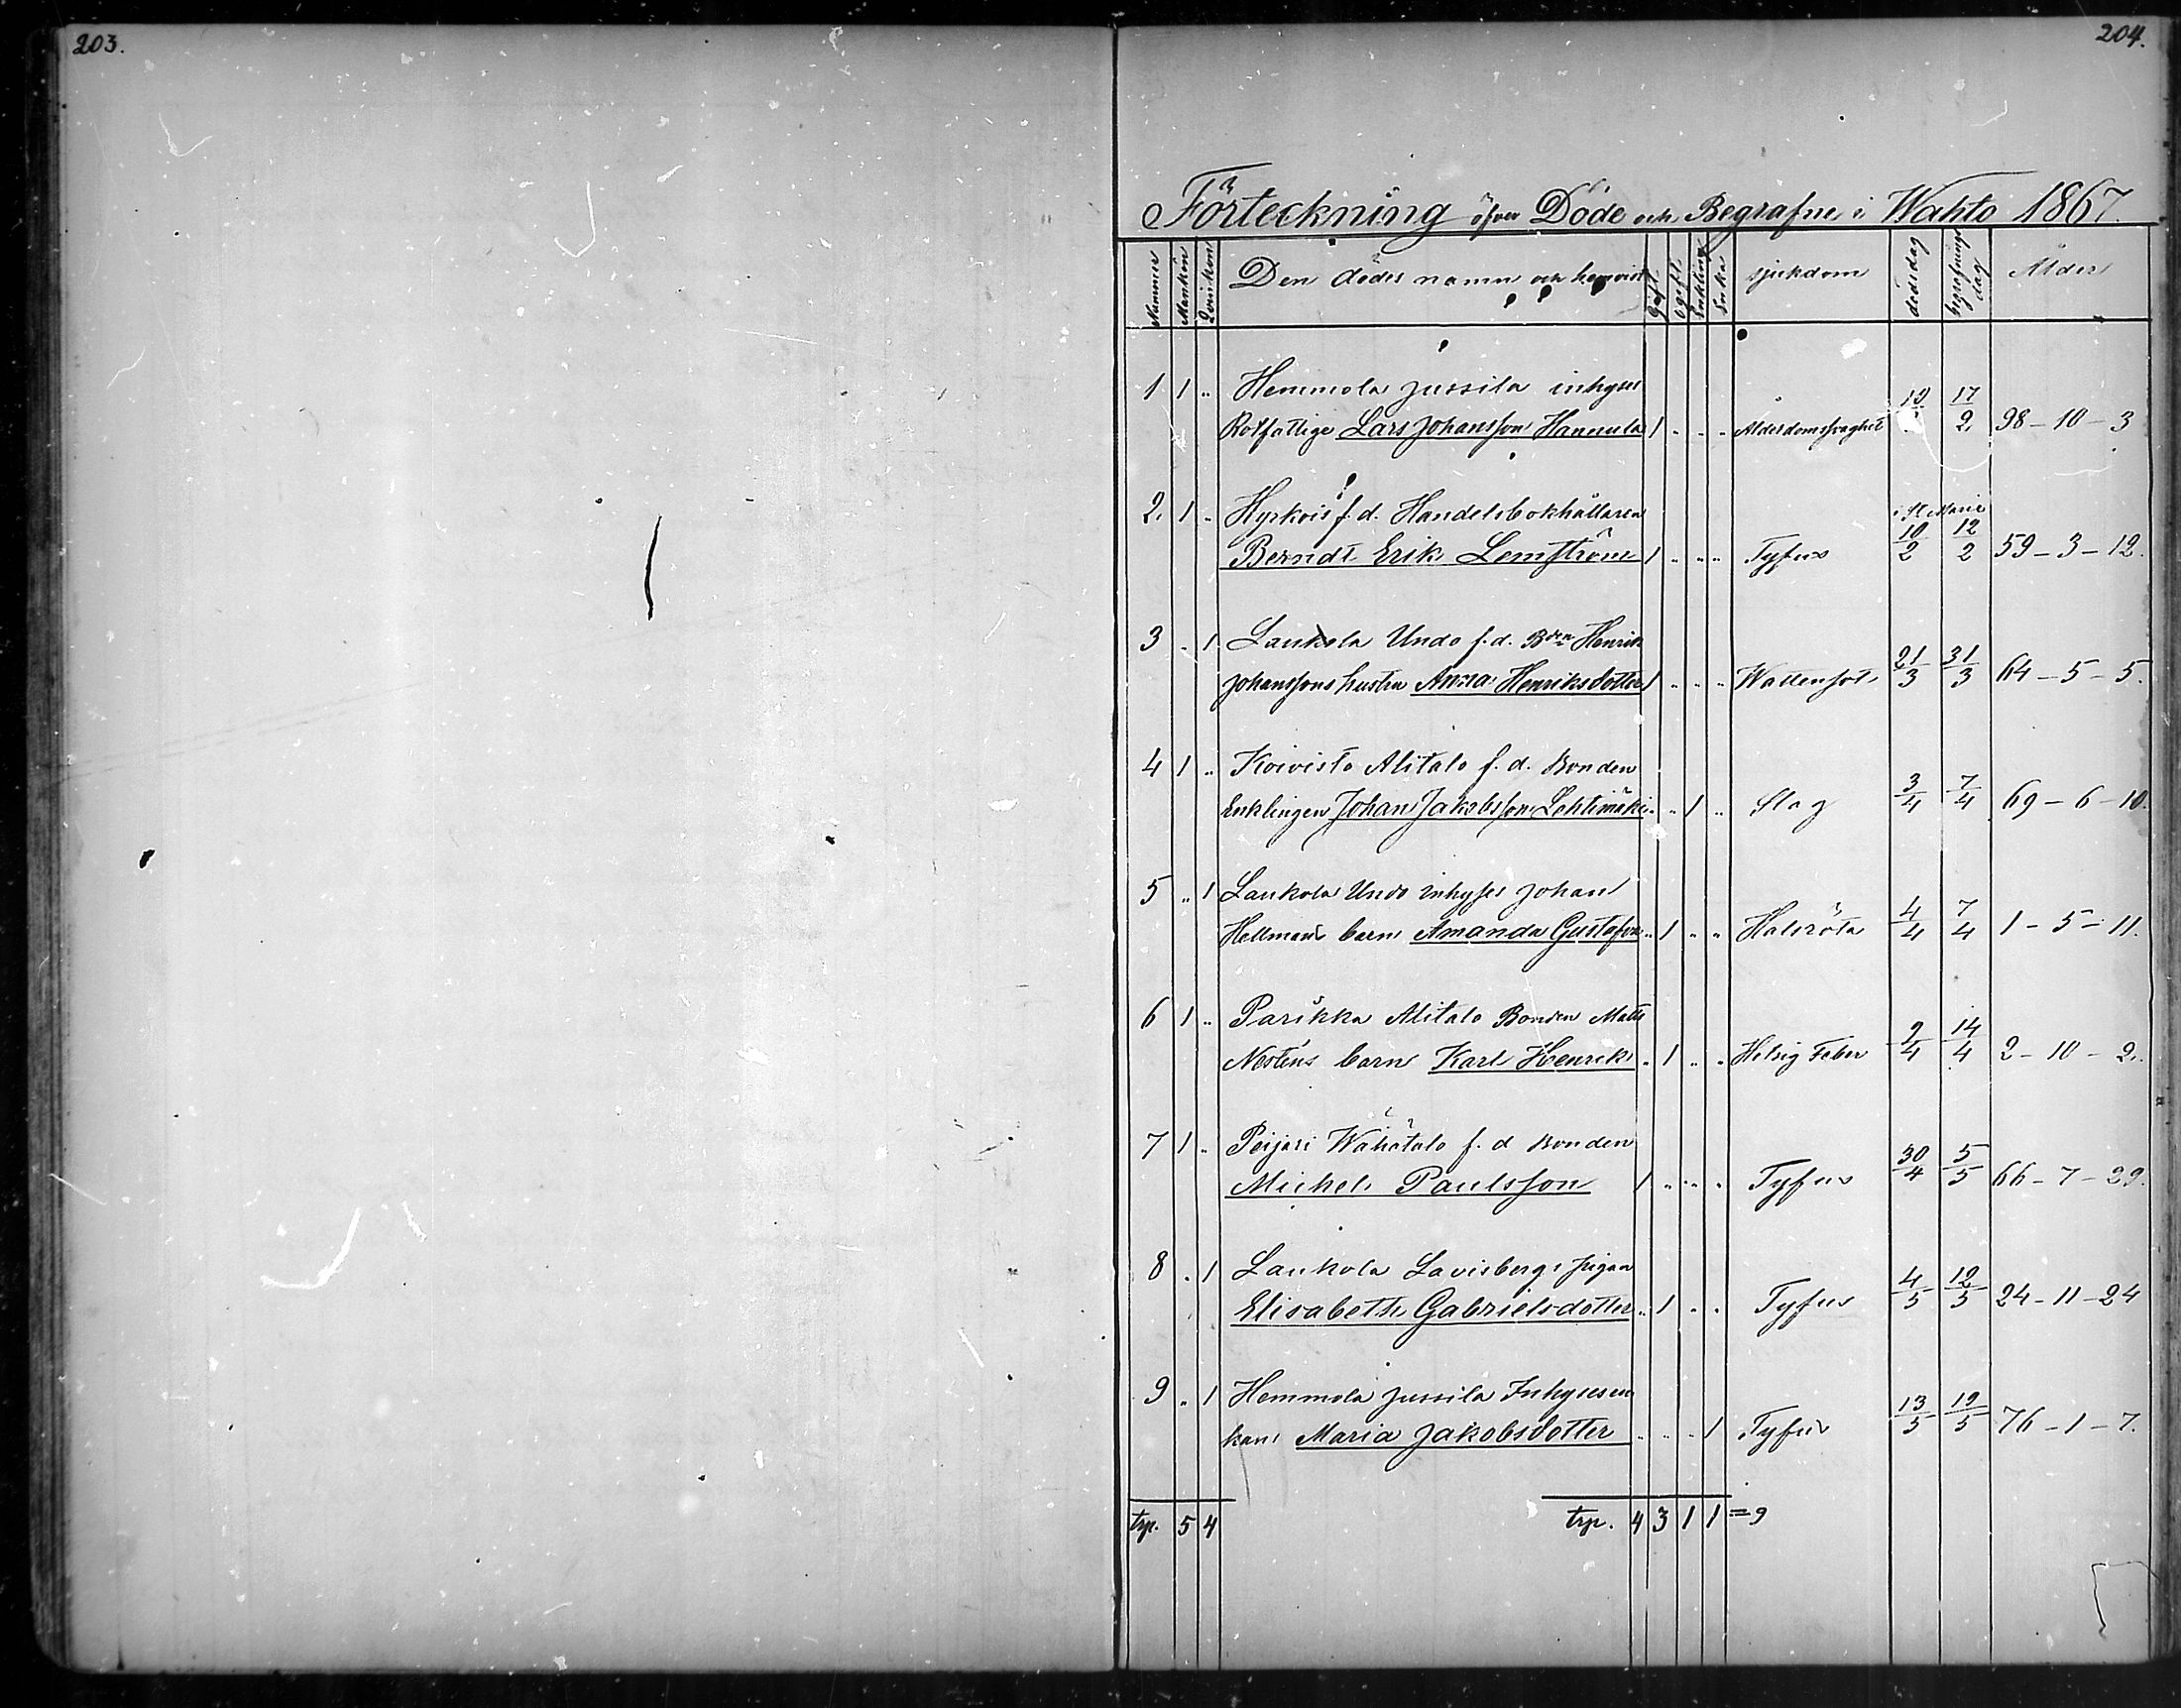 203.
204.
Förteckning öfver Döde och Begrafne i Wahto 1867.
Nummer Mankön Qvinkön Den dödes namn och hemvist Gift Ogift Enkling Enka sjukdom dödsdag begrafnings dag Ålder
1 1 " Hemmola Jussila inhyses
Rotfattige Lars Johansson Hannula 1 " " " Ålderdomssvaghet 17/2 98-10-3
2. 1 " Hyrkois f. d. Handelsbokhållaren
i St Marie
Berndt Erik Lemström 1 " " " Tyfus 10/2 12/2 59-3-12.
3 " 1 Laukola Undo f. d. Bden Henrik
Johanssons hustru Anna Henriksdotter 1 " " " Wattensot 21/3 31/3 64-5-5.
4 1 " Koivisto Alitalo f. d. Bonden
Enklingen Johan Jakobsson Lehtimäki " " 1 " Slag 3/4 7/4 69-6-10.
5 " 1 Laukola Undo inhyses Johan
Hellmans barn Amanda Gustafva " 1 " " Halsröta 4/4 7/4 1-5-11.
6 1 " Parikka Alitalo Bonden Matts
Nesténs barn Karl Henrik " 1 " " Hetsig Feber 9/4 14/4 2-10-2.
7 1 " Peijari Wähätalo f. d. Bonden
Michel Paulsson 1 " " " Tyfus 30/4 5/5 66-7-29.
8 " 1 Laukola Lavisbergs pigan
Elisabeth Gabrielsdotter " 1 " " Tyfus 4/5 12/5 24-11-24
9 " 1 Hemmola Jussila Inhysesen
kan Maria Jakobsdotter " " " 1 Tyfus 13/5 19/5 76-1-7.
trp. 5 4 trp. 4 3 1 1 =9